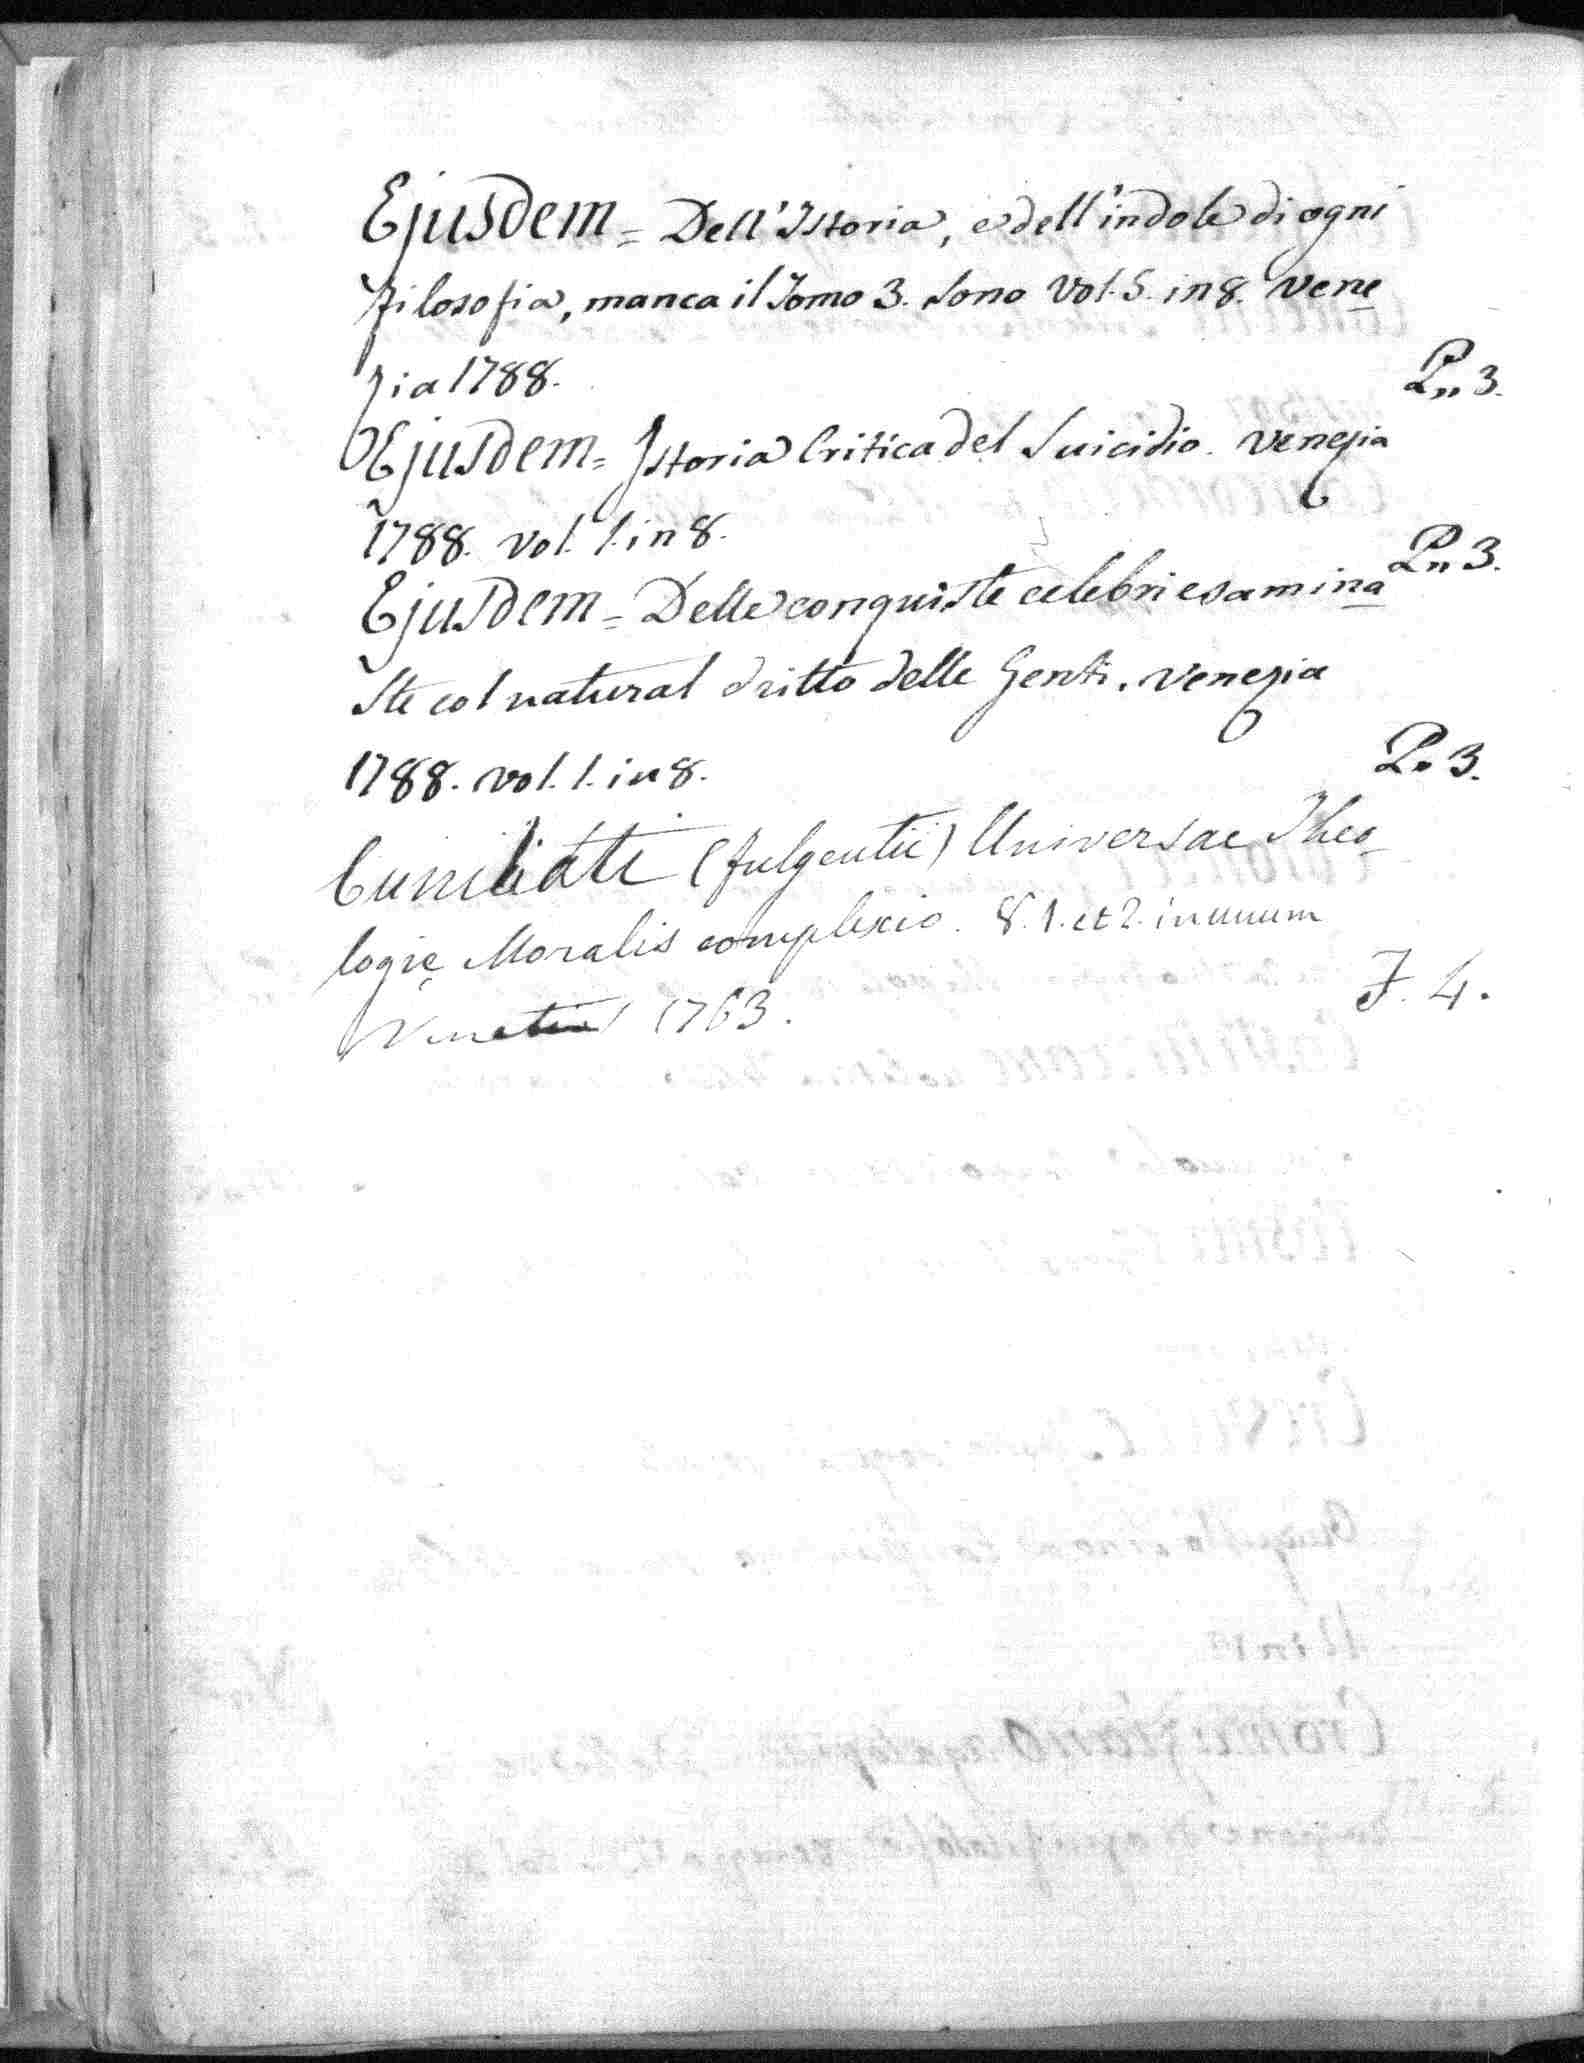 Ejusdem = Dell'Istoria, e dell'indole di ogni
filosofia, manca il Tomo 3. sono Vol. 5. in 8. Vene
zia 1788. P.„ 3.
Ejusdem = Istoria Critica del Suicidio. Venezia
1788. vol. 1. in 8. P.„ 3.
Ejusdem = Delle conquiste celebri esamina
te col natural dritto delle Genti. Venezia
1788. vol. 1. in 8. P.„ 3.
Cuniliati (fulgentii) Universae Theo
logię Moralis complexio. 8. 1. et 2. in unum
1763. J. 4.